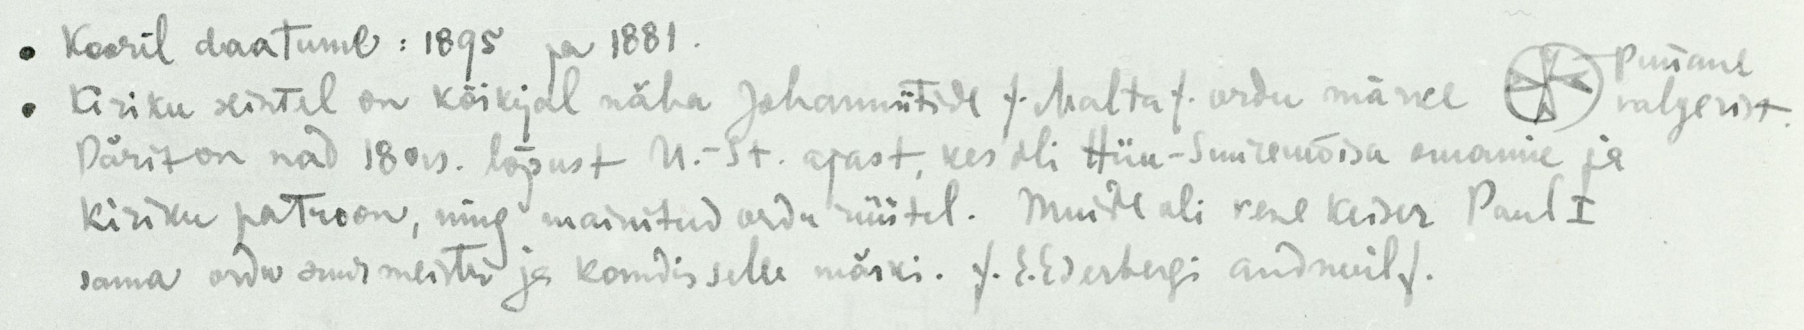 • Kooril daatume: 1895 ja 1881.
• Kiriku seintel on kõikjal näha Johanniitide /. Malta /. ordu märke
Punane
valge rist.
Pärit on nad 18. as. lõpust U.-St. ajast, kes oli Hiiu-Suuremõisa omanik ja
kiriku patroon, ning mainitud ordu rüütel. Muide oli vene keiser Paul I
sama ordu suurmeister ja kandis selle märki. /. E. Ederbergi andmeil /.